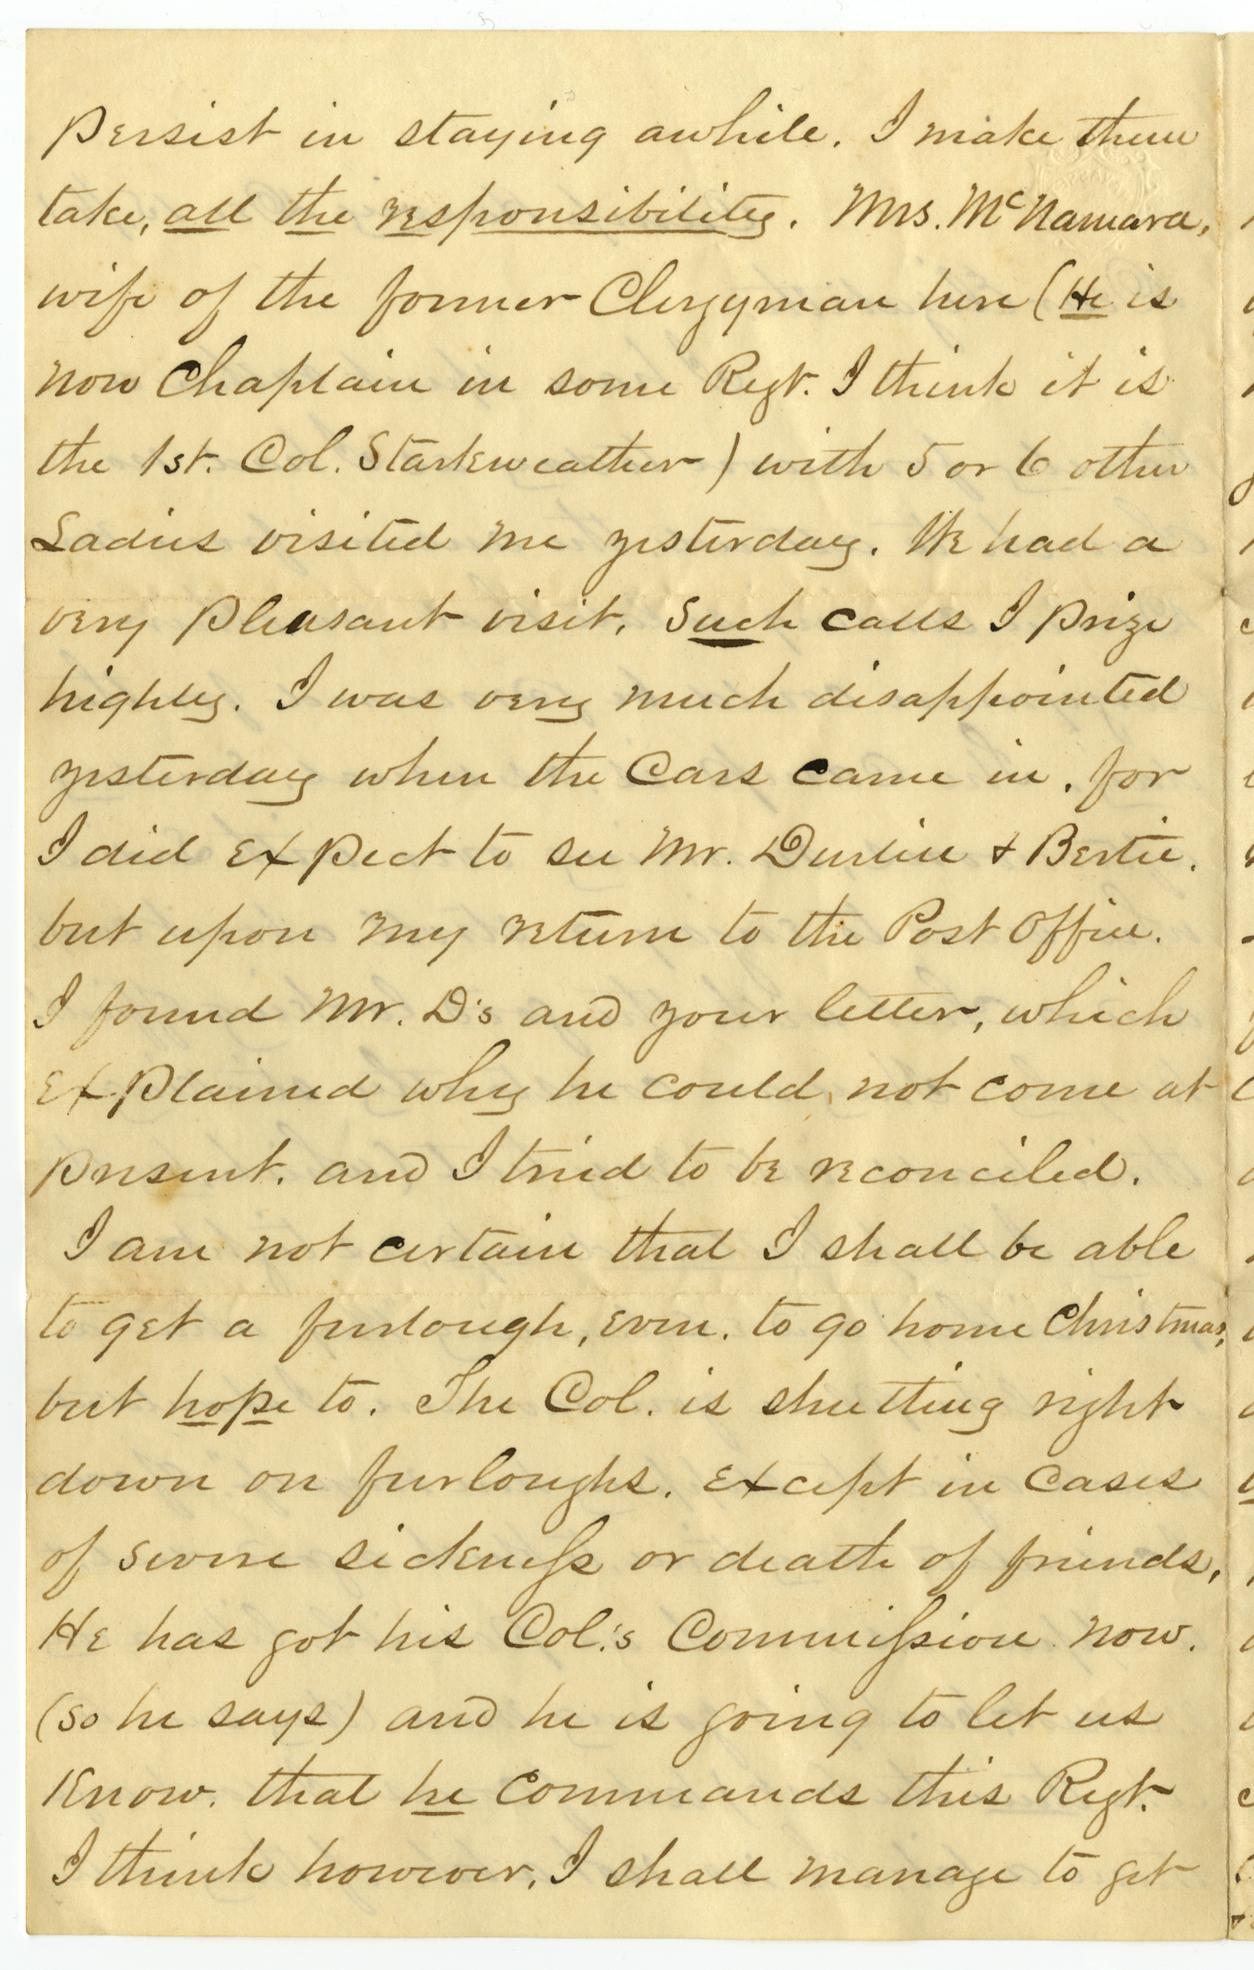 Persist in staying awhile. I make them
take, all the responsibility. Mrs. McNamara,
wife of the former Clergyman here (He is
now Chaplain in some Regt. I think it is
the 1st. Col. Starkweather) with 5 or 6 other
Ladies visited me yesterday. We had a
very pleasant visit. Such calls I prize
highly. I was very much disappointed
yesterday when the Cars came in. for
I did expect to see Mr. Durlin & Bertie.
but upon my return to the Post Office.
I found Mr. D's and your letter, which
explained why he could, not come at
present. and I tried to be reconciled.
I am not certain that I shall be able
to get a furlough, even. to go home Christmas,
but hope to. The Col. is shutting right
down on furloughs. except in cases
of severe sickness or death of friends,
He has got his Col.'s Commission now.
(so he says) and he is going to let us
Know. that he Commands this Regt.
I think however, I shall manage to get